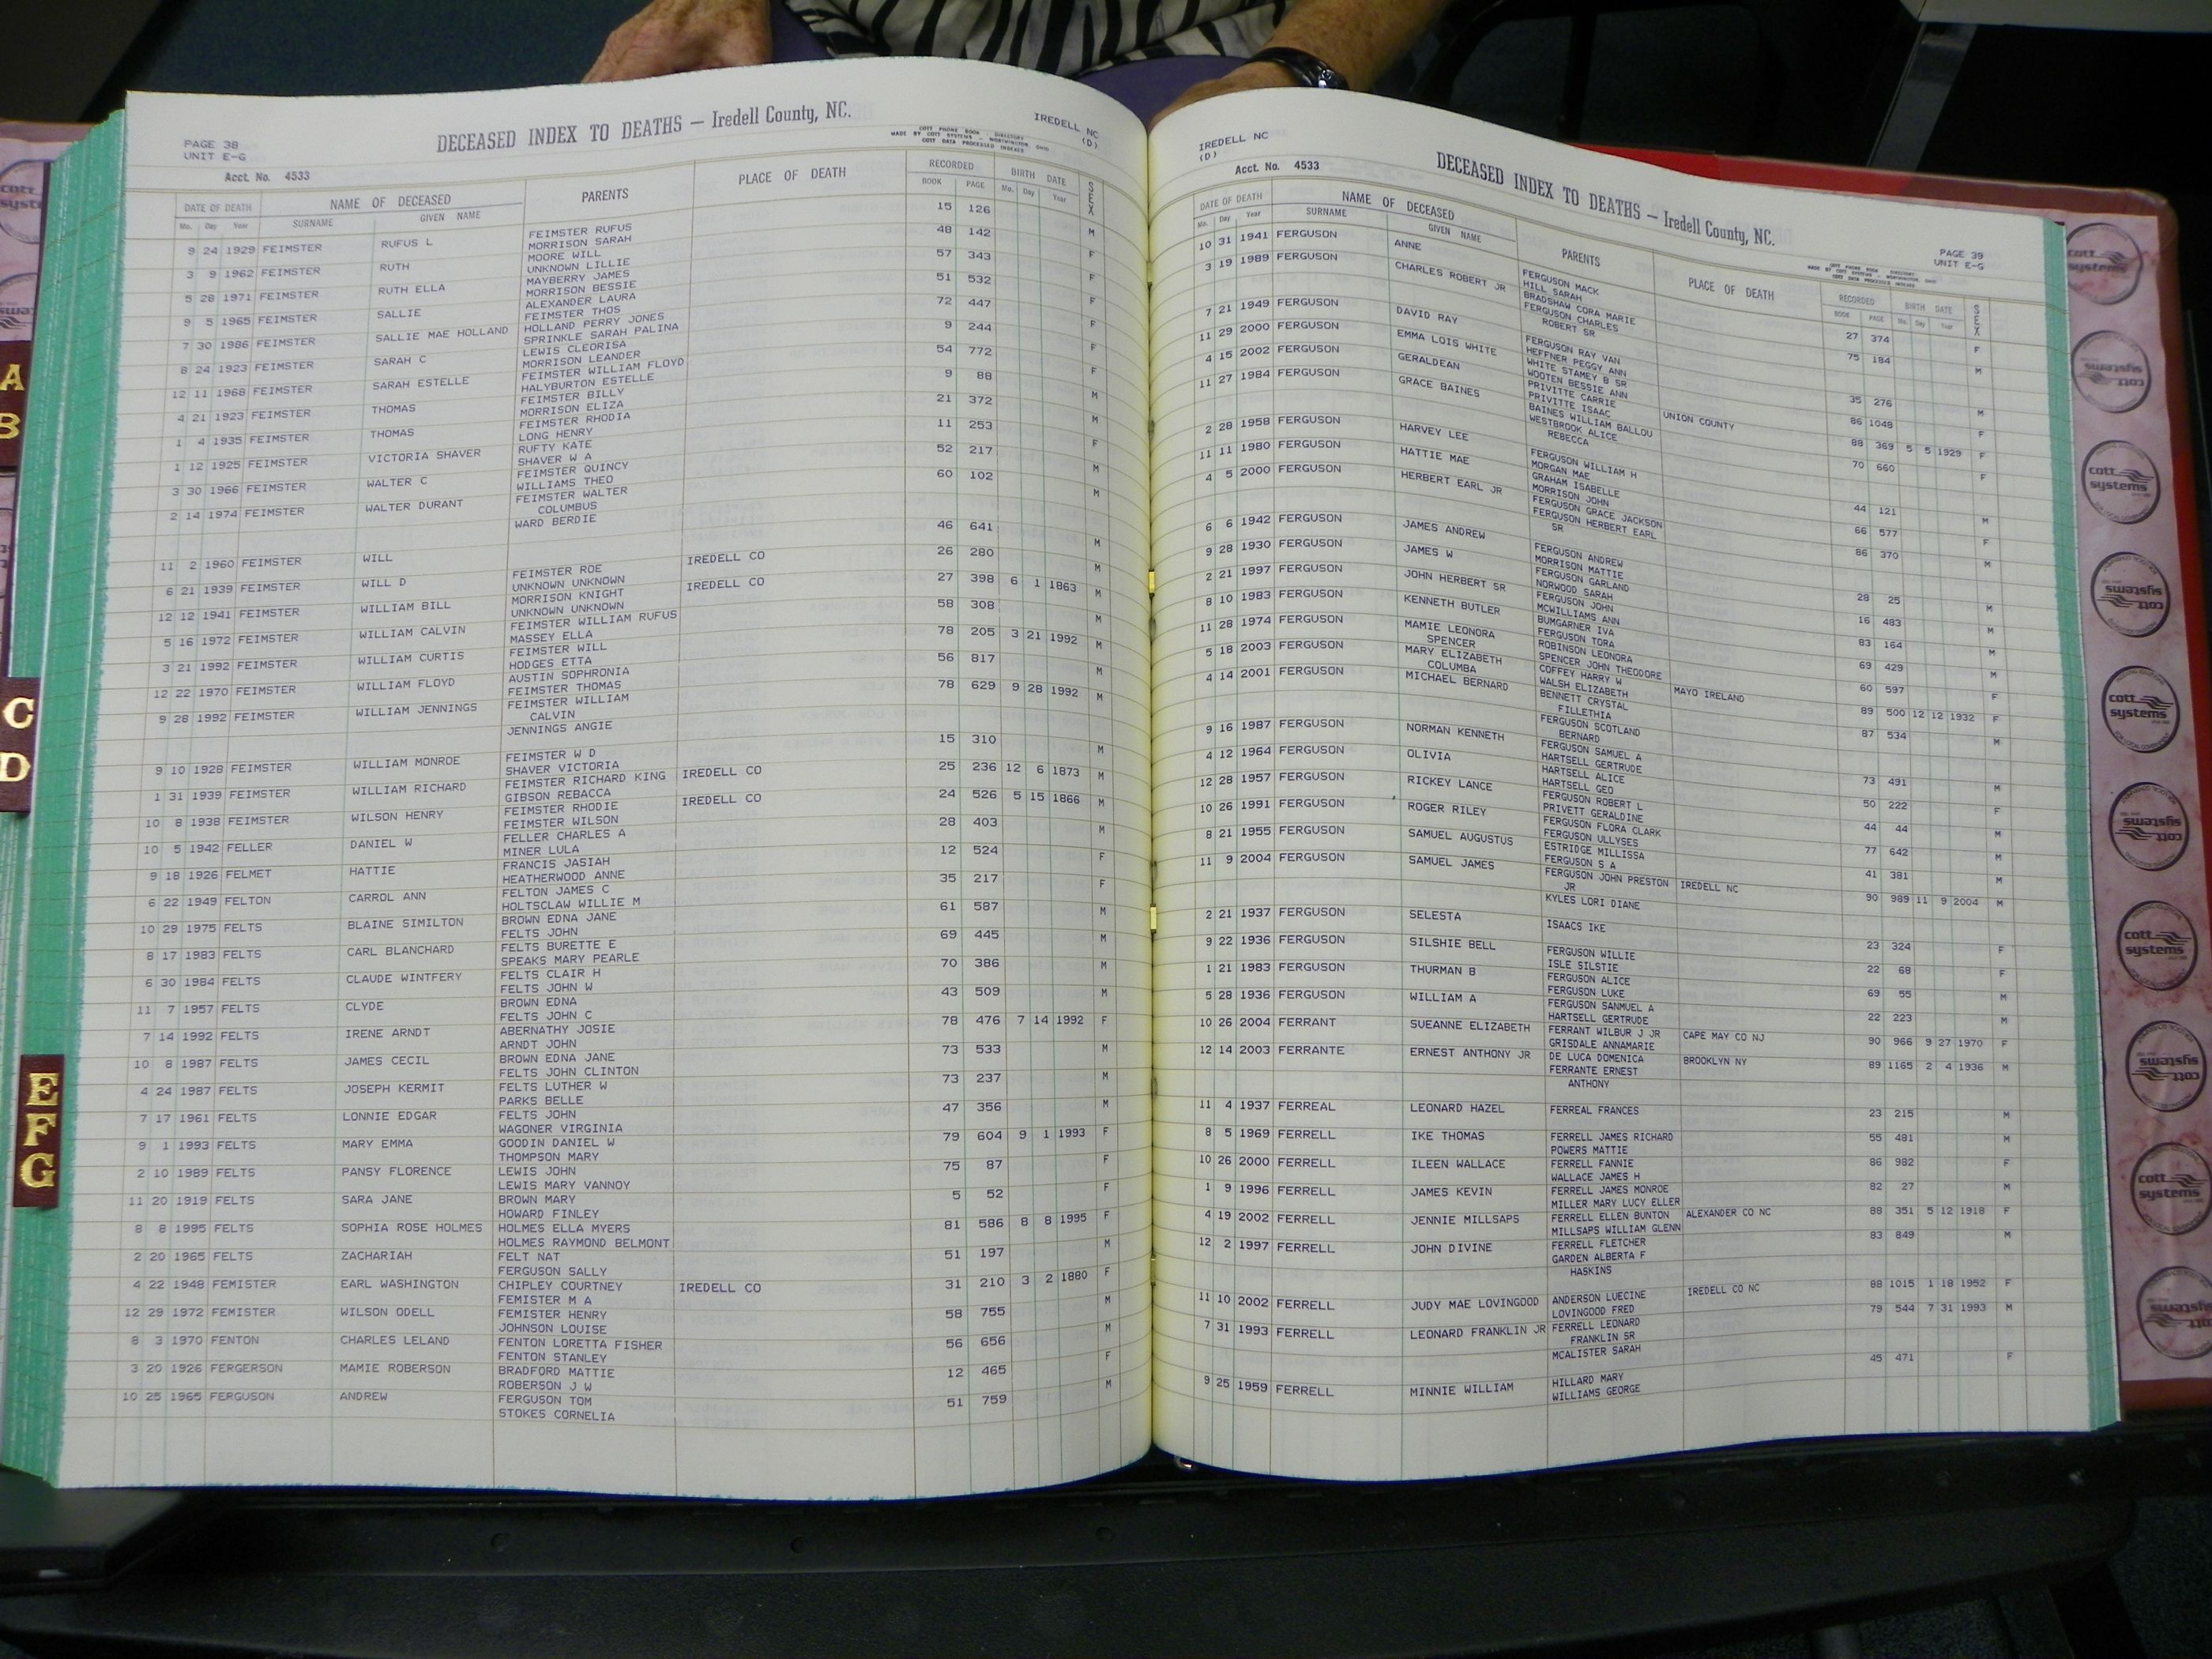 PAGE 38
UNIT E-G
DECEASED INDEX TO DEATHS — Iredell County, NC.
IREDELL NC
(D)
COTT PHONE BOOK - DIRECTORY
MADE BY COTT SYSTEMS - WORTHINGTON, OHIO
COTT DATA PROCESSED INDEXES
Acct. No. 4533
DATE OF DEATH NAME OF DECEASED PARENTS PLACE OF DEATH RECORDED BIRTH DATE SEX
Mo. Day Year SURNAME GIVEN NAME BOOK PAGE Mo. Day Year
9 24 1929 FEIMSTER RUFUS L FEIMSTER RUFUS 15 126 M
MORRISON SARAH
3 9 1962 FEIMSTER RUTH MOORE WILL 48 142 F
UNKNOWN LILLIE
5 28 1971 FEIMSTER RUTH ELLA MAYBERRY JAMES 57 343 F
MORRISON BESSIE
9 5 1965 FEIMSTER SALLIE ALEXANDER LAURA 51 532 F
FEIMSTER THOS
7 30 1986 FEIMSTER SALLIE MAE HOLLAND HOLLAND PERRY JONES 72 447 F
SPRINKLE SARAH PALINA
8 24 1923 FEIMSTER SARAH C LEWIS CLEORISA 9 244 F
MORRISON LEANDER
12 11 1968 FEIMSTER SARAH ESTELLE FEIMSTER WILLIAM FLOYD 54 772 F
HALYBURTON ESTELLE
4 21 1923 FEIMSTER THOMAS FEIMSTER BILLY 9 88 M
MORRISON ELIZA
1 4 1935 FEIMSTER THOMAS FEIMSTER RHODIA 21 372 M
LONG HENRY
1 12 1925 FEIMSTER VICTORIA SHAVER RUFTY KATE 11 253 F
SHAVER W A
3 30 1966 FEIMSTER WALTER C FEIMSTER QUINCY 52 217 M
WILLIAMS THEO
2 14 1974 FEIMSTER WALTER DURANT FEIMSTER WALTER 60 102 M
COLUMBUS
WARD BERDIE
11 2 1960 FEIMSTER WILL FEIMSTER ROE 46 641 M
UNKNOWN UNKNOWN
6 21 1939 FEIMSTER WILL D MORRISON KNIGHT IREDELL CO 26 280 M
UNKNOWN UNKNOWN
12 12 1941 FEIMSTER WILLIAM BILL FEIMSTER WILLIAM RUFUS IREDELL CO 27 398 6 1 1863 M
MASSEY ELLA
5 16 1972 FEIMSTER WILLIAM CALVIN FEIMSTER WILL 58 308 M
HODGES ETTA
3 21 1992 FEIMSTER WILLIAM CURTIS AUSTIN SOPHRONIA 78 205 3 21 1992 M
FEIMSTER THOMAS
12 22 1970 FEIMSTER WILLIAM FLOYD FEIMSTER WILLIAM 56 817 M
CALVIN
9 28 1992 FEIMSTER WILLIAM JENNINGS JENNINGS ANGIE 78 629 9 28 1992 M
9 10 1928 FEIMSTER WILLIAM MONROE FEIMSTER W D 15 310 M
SHAVER VICTORIA
1 31 1939 FEIMSTER WILLIAM RICHARD FEIMSTER RICHARD KING IREDELL CO 25 236 12 6 1873 M
GIBSON REBACCA
10 8 1938 FEIMSTER WILSON HENRY FEIMSTER RHODIE IREDELL CO 24 526 5 15 1866 M
FEIMSTER WILSON
10 5 1942 FELLER DANIEL W FELLER CHARLES A 28 403 M
MINER LULA
9 18 1926 FELMET HATTIE FRANCIS JASIAH 12 524 F
HEATHERWOOD ANNE
6 22 1949 FELTON CARROL ANN FELTON JAMES C 35 217 F
HOLTSCLAW WILLIE M
10 29 1975 FELTS BLAINE SIMILTON BROWN EDNA JANE 61 587 M
FELTS JOHN
8 17 1983 FELTS CARL BLANCHARD FELTS BURETTE E 69 445 M
SPEAKS MARY PEARLE
6 30 1984 FELTS CLAUDE WINTFERY FELTS CLAIR H 70 386 M
FELTS JOHN W
11 7 1957 FELTS CLYDE BROWN EDNA 43 509 M
FELTS JOHN C
7 14 1992 FELTS IRENE ARNDT ABERNATHY JOSIE 78 476 7 14 1992 F
ARNDT JOHN
10 8 1987 FELTS JAMES CECIL BROWN EDNA JANE 73 533 M
FELTS JOHN CLINTON
4 24 1987 FELTS JOSEPH KERMIT FELTS LUTHER W 73 237 M
PARKS BELLE
7 17 1961 FELTS LONNIE EDGAR FELTS JOHN 47 356 M
WAGONER VIRGINIA
9 1 1993 FELTS MARY EMMA GOODIN DANIEL W 79 604 9 1 1993 F
THOMPSON MARY
2 10 1989 FELTS PANSY FLORENCE LEWIS JOHN 75 87 F
LEWIS MARY VANNOY
11 20 1919 FELTS SARA JANE BROWN MARY 5 52 F
HOWARD FINLEY
8 8 1995 FELTS SOPHIA ROSE HOLMES HOLMES ELLA MYERS 81 586 8 8 1995 F
HOLMES RAYMOND BELMONT
2 20 1965 FELTS ZACHARIAH FELT NAT 51 197 M
FERGUSON SALLY
4 22 1948 FEMISTER EARL WASHINGTON CHIPLEY COURTNEY IREDELL CO 31 210 3 2 1880 F
FEMISTER M A
12 29 1972 FEMISTER WILSON ODELL FEMISTER HENRY 58 755 M
JOHNSON LOUISE
8 3 1970 FENTON CHARLES LELAND FENTON LORETTA FISHER 56 656 M
FENTON STANLEY
3 20 1926 FERGERSON MAMIE ROBERSON BRADFORD MATTIE 12 465 F
ROBERSON J W
10 25 1965 FERGUSON ANDREW FERGUSON TOM 51 759 M
STOKES CORNELIA
IREDELL NC
(D)
DECEASED INDEX TO DEATHS — Iredell County, NC.
PAGE 39
UNIT E-G
COTT PHONE BOOK - DIRECTORY
MADE BY COTT SYSTEMS - WORTHINGTON, OHIO
COTT DATA PROCESSED INDEXES
Acct. No. 4533
DATE OF DEATH NAME OF DECEASED PARENTS PLACE OF DEATH RECORDED BIRTH DATE SEX
Mo. Day Year SURNAME GIVEN NAME BOOK PAGE Mo. Day Year
10 31 1941 FERGUSON ANNE FERGUSON MACK 27 374 F
HILL SARAH
3 19 1989 FERGUSON CHARLES ROBERT JR BRADSHAW CORA MARIE 75 184 M
FERGUSON CHARLES
ROBERT SR
7 21 1949 FERGUSON DAVID RAY FERGUSON RAY VAN 35 276 M
HEFFNER PEGGY ANN
11 29 2000 FERGUSON EMMA LOIS WHITE WHITE STAMEY B SR UNION COUNTY 86 1048 F
WOOTEN BESSIE ANN
4 15 2002 FERGUSON GERALDEAN PRIVITTE CARRIE 88 369 5 5 1929 F
PRIVITTE ISAAC
11 27 1984 FERGUSON GRACE BAINES BAINES WILLIAM BALLOU 70 660 F
WESTBROOK ALICE
REBECCA
2 28 1958 FERGUSON HARVEY LEE FERGUSON WILLIAM H 44 121 M
MORGAN MAE
11 11 1980 FERGUSON HATTIE MAE GRAHAM ISABELLE 66 577 F
MORRISON JOHN
4 5 2000 FERGUSON HERBERT EARL JR FERGUSON GRACE JACKSON 86 370 M
FERGUSON HERBERT EARL
SR
6 6 1942 FERGUSON JAMES ANDREW FERGUSON ANDREW 28 25 M
MORRISON MATTIE
9 28 1930 FERGUSON JAMES W FERGUSON GARLAND 16 483 M
NORWOOD SARAH
2 21 1997 FERGUSON JOHN HERBERT SR FERGUSON JOHN 83 164 M
MCWILLIAMS ANN
8 10 1983 FERGUSON KENNETH BUTLER BUMGARNER IVA 69 429 M
FERGUSON TORA
11 28 1974 FERGUSON MAMIE LEONORA ROBINSON LEONORA 60 597 F
SPENCER SPENCER JOHN THEODORE
5 18 2003 FERGUSON MARY ELIZABETH COFFEY HARRY W MAYO IRELAND 89 500 12 12 1932 F
COLUMBA WALSH ELIZABETH
4 14 2001 FERGUSON MICHAEL BERNARD BENNETT CRYSTAL 87 534 M
FILLETHIA
FERGUSON SCOTLAND
BERNARD
9 16 1987 FERGUSON NORMAN KENNETH FERGUSON SAMUEL A 73 491 M
HARTSELL GERTRUDE
4 12 1964 FERGUSON OLIVIA HARTSELL ALICE 50 222 F
HARTSELL GEO
12 28 1957 FERGUSON RICKEY LANCE FERGUSON ROBERT L 44 44 M
PRIVETT GERALDINE
10 26 1991 FERGUSON ROGER RILEY FERGUSON FLORA CLARK 77 642 M
FERGUSON ULLYSES
8 21 1955 FERGUSON SAMUEL AUGUSTUS ESTRIDGE MILLISSA 41 381 M
FERGUSON S A
11 9 2004 FERGUSON SAMUEL JAMES FERGUSON JOHN PRESTON IREDELL NC 90 989 11 9 2004 M
JR
KYLES LORI DIANE
2 21 1937 FERGUSON SELESTA ISAACS IKE 23 324 F
9 22 1936 FERGUSON SILSHIE BELL FERGUSON WILLIE 22 68 F
ISLE SILSTIE
1 21 1983 FERGUSON THURMAN B FERGUSON ALICE 69 55 M
FERGUSON LUKE
5 28 1936 FERGUSON WILLIAM A FERGUSON SANMUEL A 22 223 M
HARTSELL GERTRUDE
10 26 2004 FERRANT SUEANNE ELIZABETH FERRANT WILBUR J JR CAPE MAY CO NJ 90 966 9 27 1970 F
GRISDALE ANNAMARIE
12 14 2003 FERRANTE ERNEST ANTHONY JR DE LUCA DOMENICA BROOKLYN NY 89 1165 2 4 1936 M
FERRANTE ERNEST
ANTHONY
11 4 1937 FERREAL LEONARD HAZEL FERREAL FRANCES 23 215 M
8 5 1969 FERRELL IKE THOMAS FERRELL JAMES RICHARD 55 481 M
POWERS MATTIE
10 26 2000 FERRELL ILEEN WALLACE FERRELL FANNIE 86 982 F
WALLACE JAMES H
1 9 1996 FERRELL JAMES KEVIN FERRELL JAMES MONROE 82 27 M
MILLER MARY LUCY ELLER
4 19 2002 FERRELL JENNIE MILLSAPS FERRELL ELLEN BUNTON ALEXANDER CO NC 88 351 5 12 1918 F
MILLSAPS WILLIAM GLENN
12 2 1997 FERRELL JOHN DIVINE FERRELL FLETCHER 83 849 M
GARDEN ALBERTA F
HASKINS
11 10 2002 FERRELL JUDY MAE LOVINGOOD ANDERSON LUECINE IREDELL CO NC 88 1015 1 18 1952 F
LOVINGOOD FRED
7 31 1993 FERRELL LEONARD FRANKLIN JR FERRELL LEONARD 79 544 7 31 1993 M
FRANKLIN SR
MCALISTER SARAH
9 25 1959 FERRELL MINNIE WILLIAM HILLARD MARY 45 471 F
WILLIAMS GEORGE
A
B
C
D
E
F
G
cott systems
cott systems
cott systems
cott systems
cott systems
cott systems
cott systems
cott systems
cott systems
cott systems